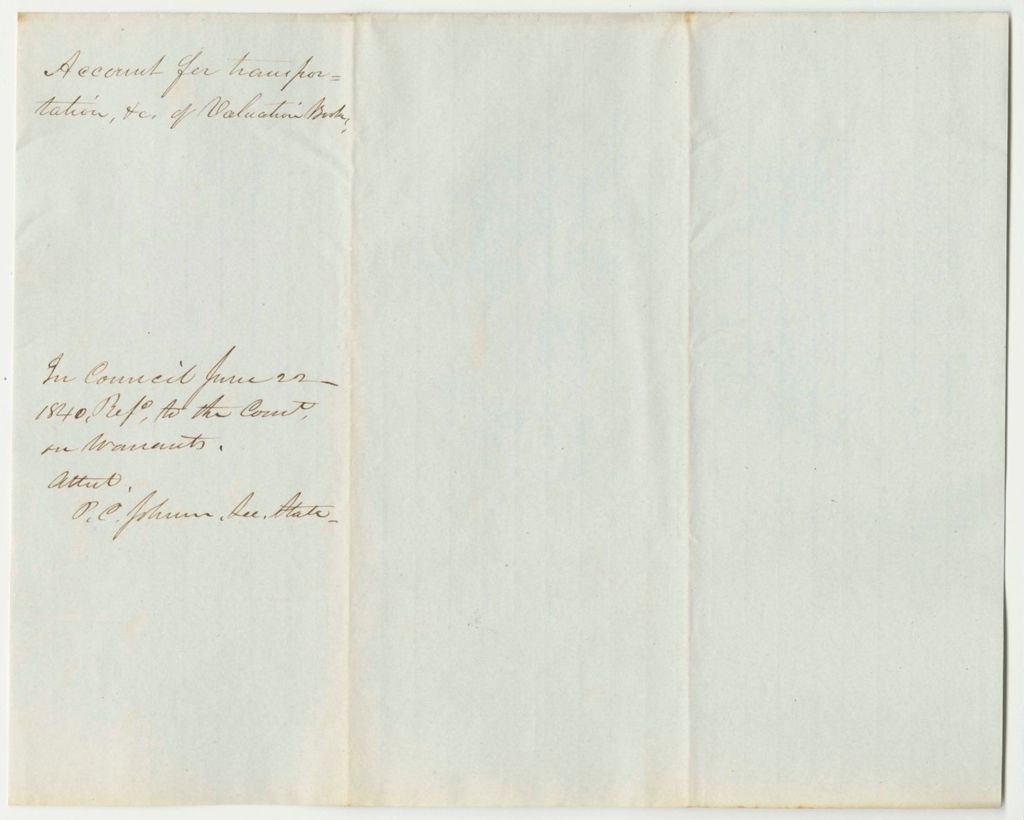 Account for transpor=
tation, &c. of Valuation Books,
In Council June 22
1840, Refd, to the Comt,
on Warrants.
Attest,
P. C. Johnson, Sec. State